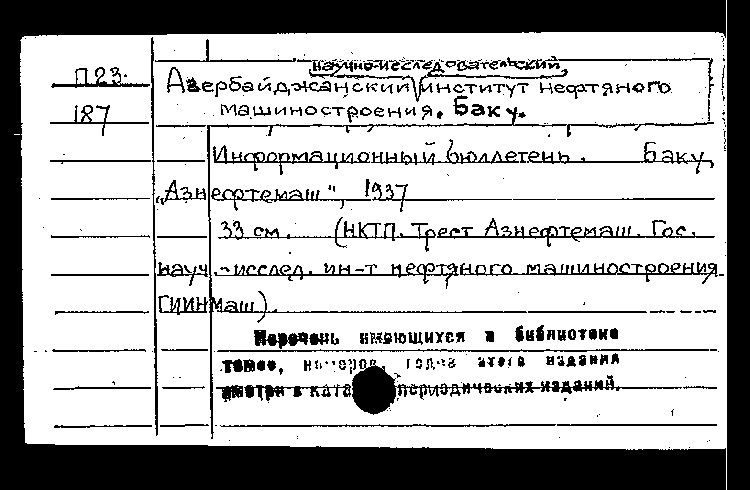 П23.
187
научно-исследовательский
Азербайджанский институт нефтяного
машиностроения. Баку.
Информационный бюллетень. Баку,
„Азнефтемаш", 1937
33 см. (НКТП. Трест Азнефтемаш. Гос.
науч.-исслед. ин-т нефтяного машиностроения
ГИИНМаш).
Перечень имеющихся в библиотеке
томов, номеров, годов этого издания
смотри в ката периодических изданий.